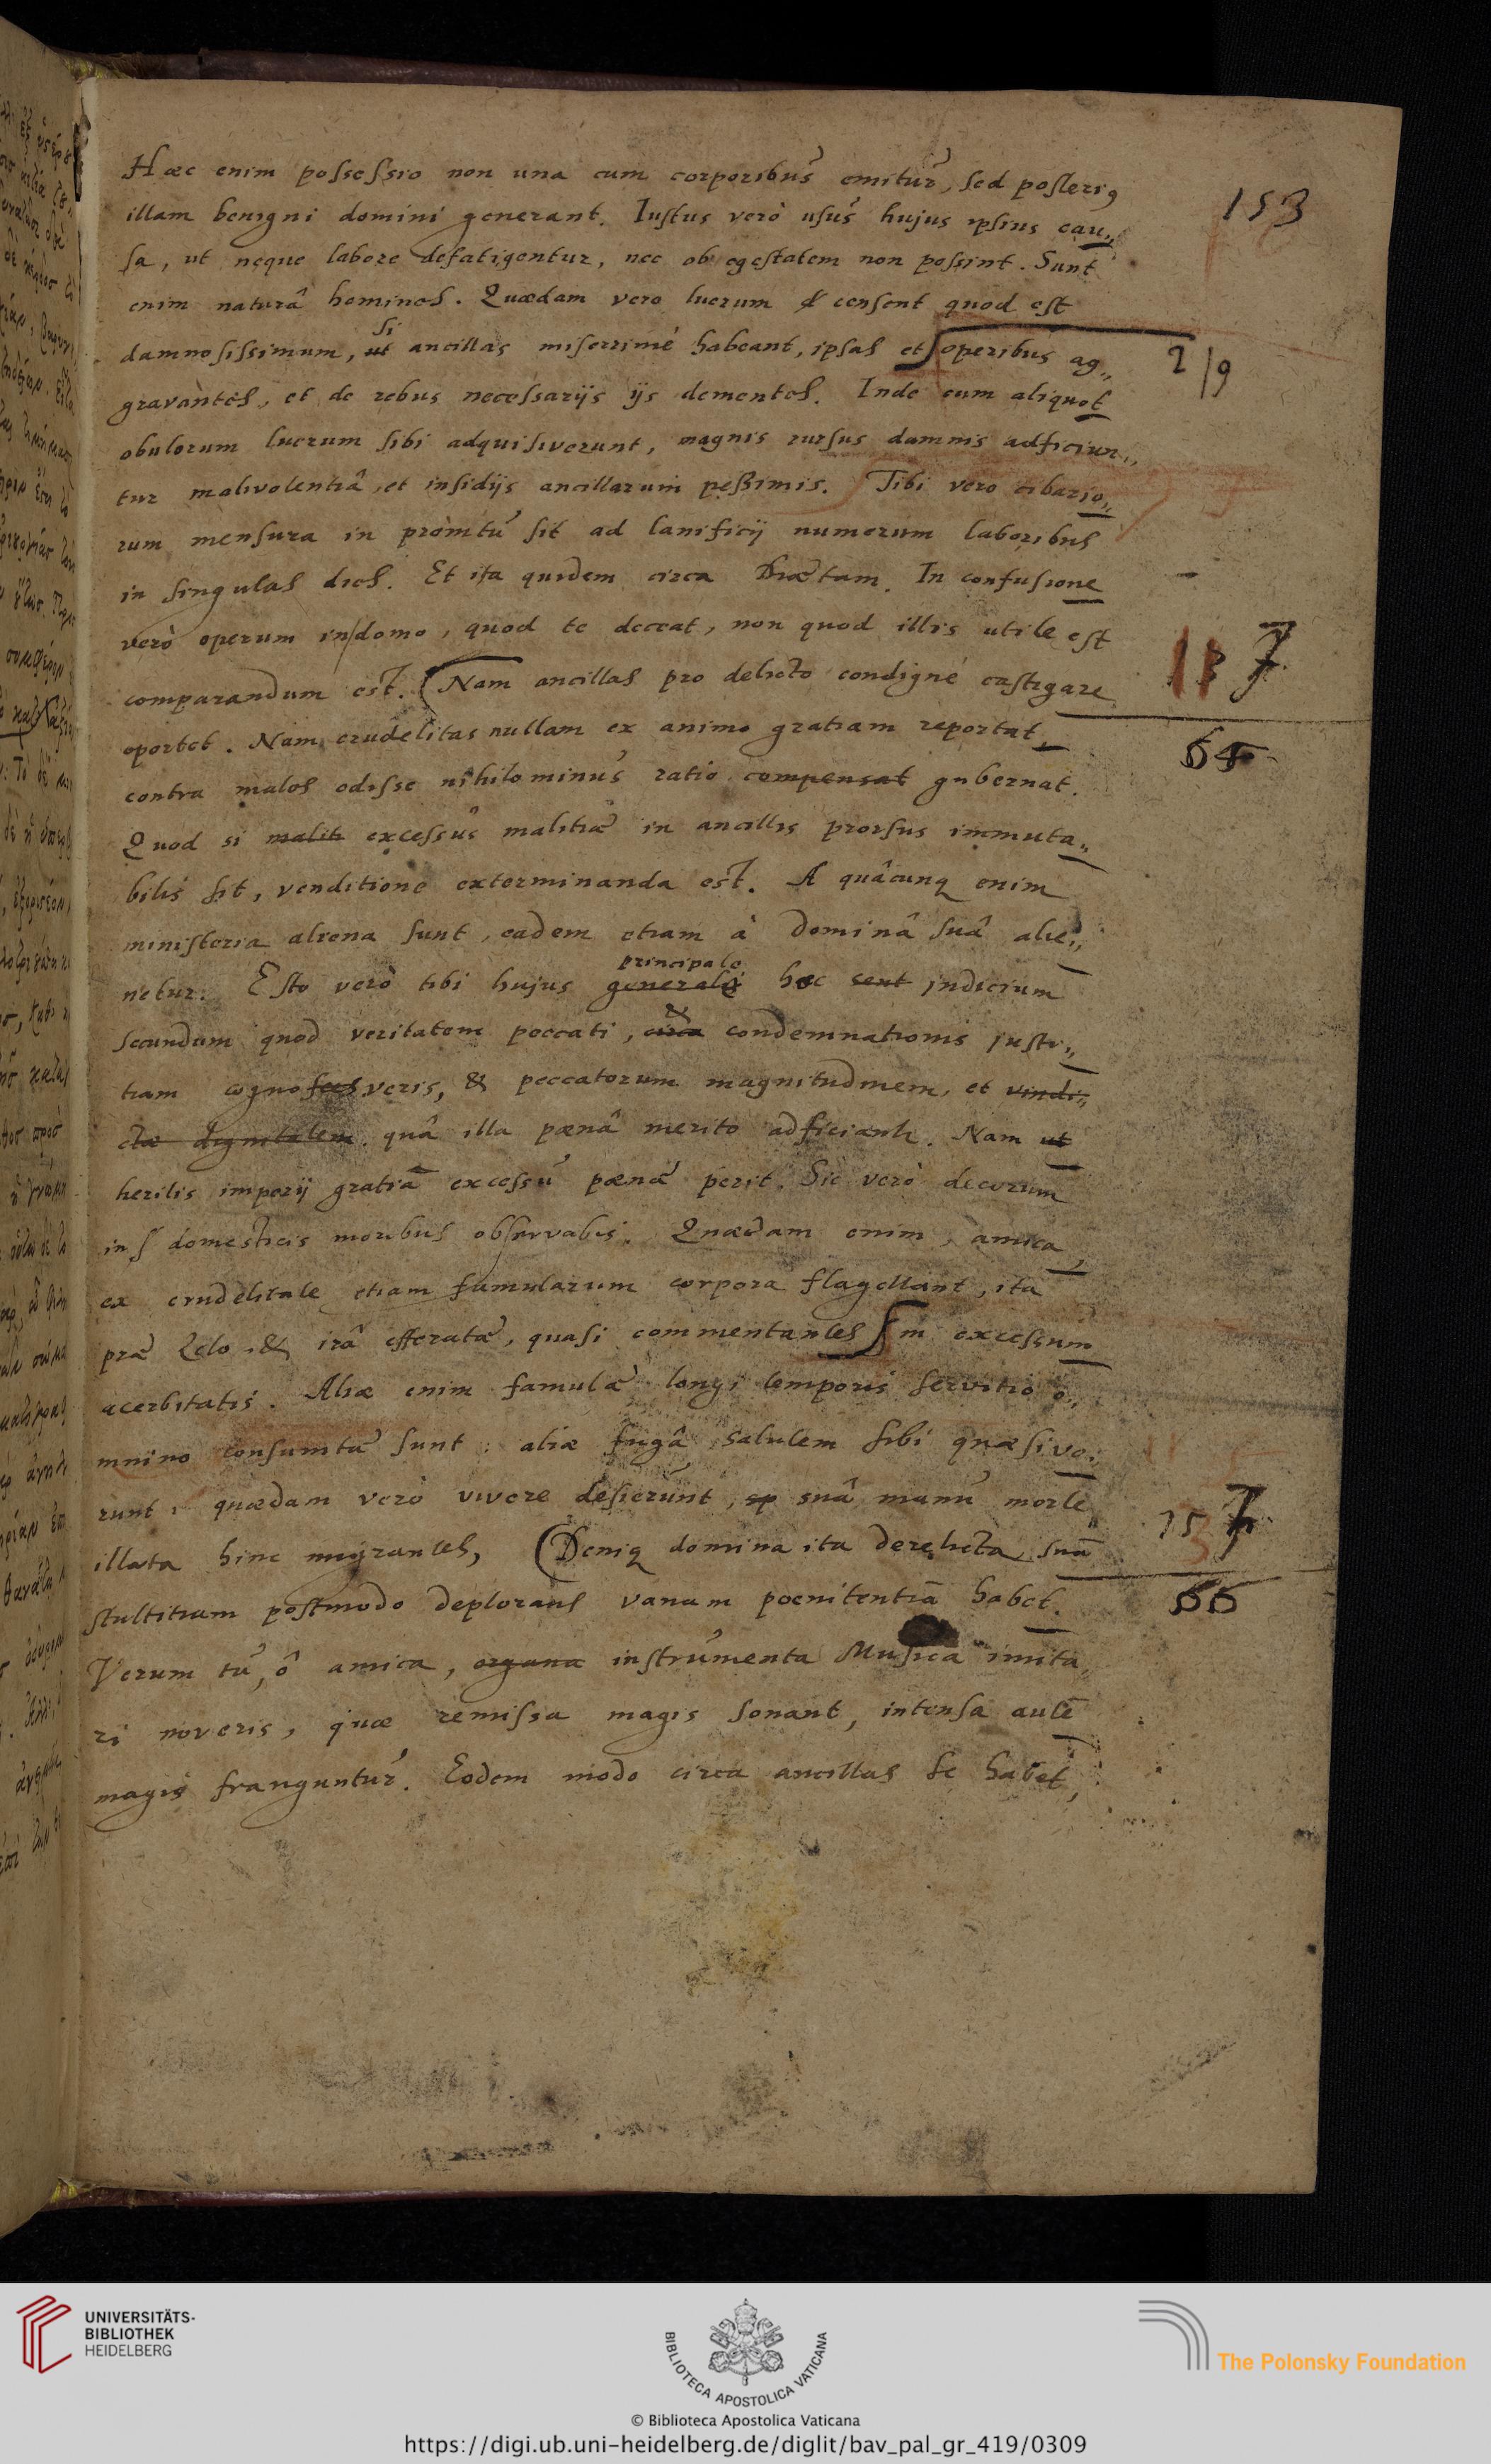 153
Hæc enim possessio non una cum corporibus emitur, sed posteriꝰ
illam benigni domini generant. Iustus verò usus hujus ipsius cau„
sa, ut neque labore defatigentur, nec ob egestatem non possint. Sunt
enim naturâ homines. Quædam vero lucrum censent quod est
si
damnosissimum, ut ancillas miserrimè habeant, ipsas et operibus ag„
2/9
gravantes, et de rebus necessarijs ijs dementes. Inde cum aliquot
obulorum lucrum sibi adquisiverunt, magnis rursus damnis adficiun„
tur malivolentiâ, et insidijs ancillarum peßimis. Tibi vero cibario„
rum mensura in promtu sit ad lanificij numerum laboribus
in singulas dies. Et ita quidem circa Diætam. In confusione
verò operum in domo, quod te deceat, non quod illis utile est
137
comparandum est. (Nam ancillas pro delicto condignè castigare
oportet. Nam crudelitas nullam ex animo gratiam reportat,
65
contra malos odisse nihilominus ratio compensat gubernat.
Quod si malit excessus malitiæ in ancillis prorsus immuta„
bilis sit, venditione exterminanda est. A quâcunq enim
ministeria aliena sunt, eadem etiam à dominâ suâ alie„
principale
netur. Esto verò tibi hujus generalis hoc sent indicium
&
secundum quod veritatem peccati, circa condemnationis justi„
tiam cognosces veris, & peccatorum magnitudinem, et vindi„
ctæ dignitatem, quâ illa pœnâ merito adficiant. Nam ut
herilis imperij gratia excessu pænæ perit. Sic verò decorum
in domesticis moribus observabis. Quædam enim, amica,
ex crudelitate etiam famularum corpora flagellant, ita
præ zelo, & irâ efferatæ, quasi commentantes in excessum
acerbitatis. Aliæ enim famulæ longi temporis servitio o„
mnino consumtæ sunt: aliæ fugâ salutem sibi quæsive„
runt: quædam verò vivere desierunt, suâ manu morte
157
illata hinc migrantes, (Deniq domina ita derelicta suā
66
stultitiam postmodo deplorans vanam poenitentiā habet.
Verum tu, ô amica, organa instrumenta Musica imita„
ri noveris, quæ remissa magis sonant, intensa autē
magis franguntur. Eodem modo circa ancillas se habet,
UNIVERSITÄTS-
BIBLIOTHEK
HEIDELBERG
BIBLIOTECA APOSTOLICA VATICANA
© Biblioteca Apostolica Vaticana
The Polonsky Foundation
https://digi.ub.uni-heidelberg.de/diglit/bav_pal_gr_419/0309